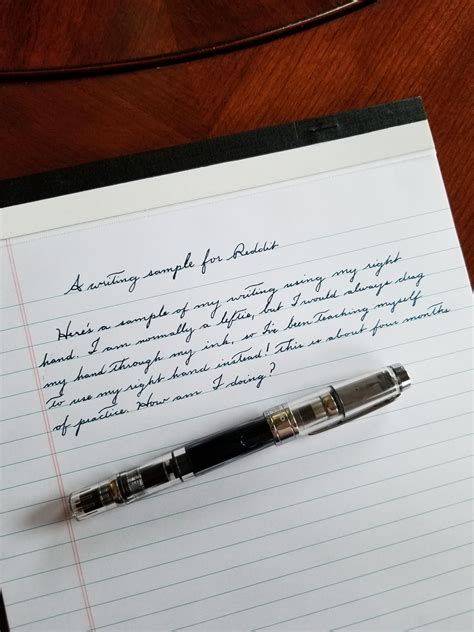 A writing sample for Reddit
Here's a sample of my writing using my right
hand. I am normally a leftie, but I would always drag
my hand through my ink, so I've been teaching myself
to use my right hand instead! This is about four months
of practice. How am I doing?